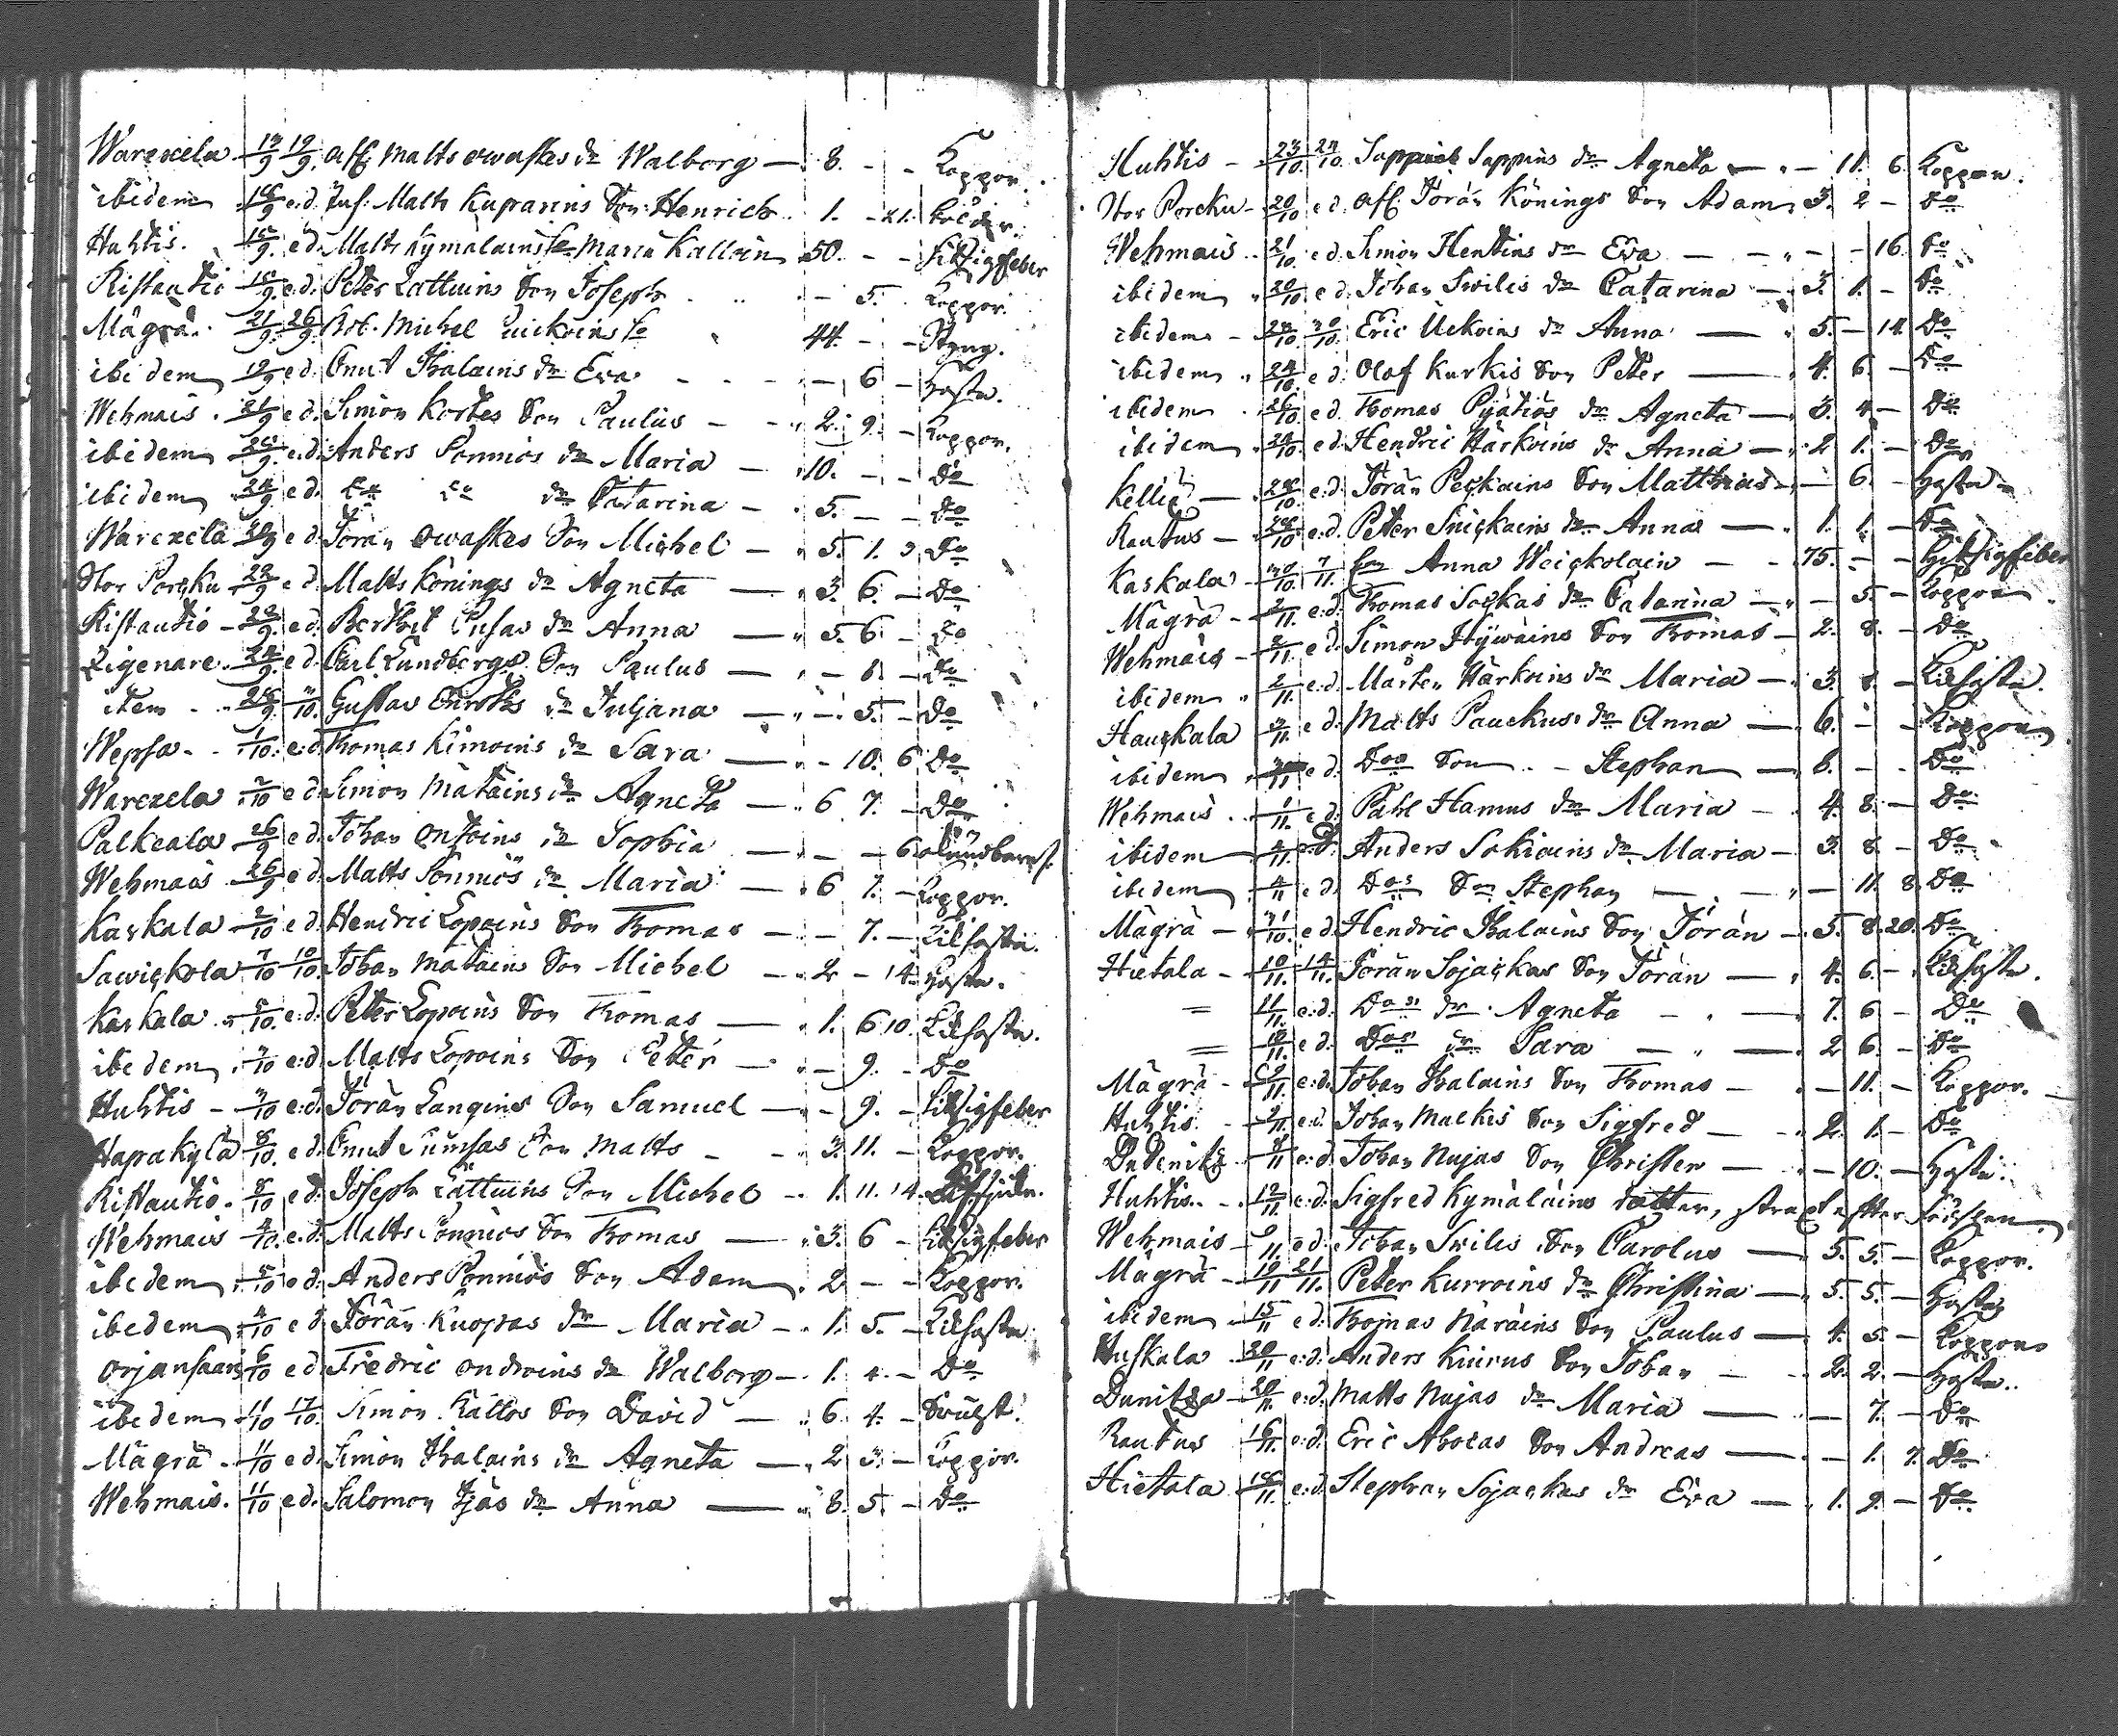 Warexela 13/9 19/9 Aff. Matts Owaskes dr Walborg — 8. - - Koppor.
ibidem 18/9 e.d. Inh: Matts Kuparins Son Henrich 1. - 21.
Huhtis. 15/9 e.d. Matts Kymäläins Maria Kalloin 50. - - Hitsigfeber
Ristautio 18/9 e.d. Peter Lattuins Son Joseph - 5. Koppor.
Mägrä. 21/9 26/9 Michel 44. - - Styng.
ibidem 19/9 e.d. Cnut Ihalains dr Eva - - - 6 - Hosta.
Wehmais 21/9 e.d. Simon Kortes Son Paulus - - 2. 9. - Koppor.
ibidem e.d. Anders Ponniös dr Maria — 10. - - Do
ibidem 24/9 e.d. Do Do dr Catarina - 5. — - Do
Warexela e.d. Jöran Owaskes Son Michel — 5. 1. Do
Stor Porcku 22/9 e.d. Matts Könings dr Agneta — 3. 6. — Do
Ristautio e.d. Berthil Pusas dr Anna — 5. 6 - Do
Ligenare e.d. Carl Lundbergs Son Paulus — - 8 - Do
item Gustav dr Juljana — - 5. - Do
Wepsa - 1/10. e.d. Thomas Kimoins dr Sara — - 10. 6 Do
Warexela e.d. Simon Mätäins dr Agneta — 6 7. - Do
Palkeala 26/9 e.d. Johan Ontoins dr Sophia — - - 6
Wehmais 26/9 e.d. Matts Ponniös dr Maria — 6 7. - Koppor.
Kaskala 2/10 e.d. Hendric Lopoins Son Thomas — - 7. - Kikhosta.
Sawickola 7/10 10/10. Johan Mätäins Son Michel — 2 - 14. Hosta.
Kaskala 5/10. e.d. Peter Lopoins Son Thomas — 1. 6 10. Kikhosta.
ibidem e.d. Matts Lopoins Son Peter — - 9. - Do
Huhtis e.d. Jöran Langines Son Samuel — - 9. - Hitsigfeber
Haparkylä 8/10. e.d. Cnut Son Matts - - 3. 11. - Koppor.
Ristautio. 8/10 e.d. Joseph Lattuins Son Michel - 1. 11. 14.
Wehmais 4/10. e.d. Matts Ponniös Son Thomas — 3. 6 - Hitsigfeber
ibidem e.d. Anders Ponniös Son Adam 2 - - Koppor.
ibidem 4/10 e.d. Jöran Kuopas dr Maria — 1. 5. - Kikhosta
Orjansaari 6/10 e.d. Fredric Ondroins dr Walborg — 1. 4. - Do
ibidem 11/10 17/10. Simon Kältös Son David — 6 4. -
Mägrä 11/10 e.d. Simon Ihalains dr Agneta — 2 3. - Koppor.
Wehmais. 11/10 e.d. Salomon dr Anna — 8. 5. - Do
Huhtis - 23/10. 24/10. Suppins dr Agneta — - 11. 6. Koppor.
Stor Porcku - 20/10 e.d. Aff. Jöran Könings Son Adam 3. 2 - Do
Wehmais 21/10. e.d. Simon Henttins dr Eva - - - 16. Do
ibidem 20/10 e.d. Johan Swilis dr Catarina — 3. 1. - Do
ibidem - 30/10. Eric Uckoins dr Anna — 5. - 14. Do
ibidem 24/10. e.d. Olof Kurkis Son Peter — 4. 6. - Do
ibidem 26/10 e.d. Thomas Pyätiös dr Agneta — 3. 4 - Do
ibidem 24/10. e.d. Hendric Härköins dr Anna — 2 1. - Do
Kellis — e.d. Jöran Peckains Son Matthias - 6 - Hosta
Rautus — e.d. Peter Snickains dr Anna — 1. 1. - Do
Kaskala - 30/10. 7/11. Anna Weickolain - - 75. - - Hitsigfeber
Mägrä - 2/11. e.d. Thomas Sockas dr Catarina — - 5. - Koppor
Wehmais - 2/11. e.d. Simon Hywäins Son Thomas - 2. 8. - Do
ibidem 2/11. e.d. Mårten Härkoins dr Maria — 3. 8. - Kikhosta.
Hauckala e.d. Matts Pauckus dr Anna — 6. - - Koppor
ibidem e.d. Dos Son - Stephan — 8. - - Do
Wehmais 1/11. e.d. Påhl Hamus dr Maria - 4. 8. - Do
ibidem 4/11. e.d. Anders Sokiains dr Maria - 3. 8. - Do
ibidem 4/11 e.d. Dos Son Stephan — - 11. 8. Do
Mägrä - 31/10. e.d. Hendric Ihalains Son Jöran - 5. 8. 20. Do
Hietala - 10/11. 14/11. Jöran Sojackas Son Jöran — 4. 6. - Kikhosta.
= 11/11. e.d. Dos dr Agneta - - — 7. 6 - Do
= 10/11. e.d. Dos dr Sara — - — 2 6. - Do
Mägrä - e.d. Johan Ihalains Son Thomas - - 11. - Koppor.
Huhtis. e.d. Johan Malkes Son Sigfred — 2. 1. - Do
e.d. Johan Nujas Son Christer — - 10. - Hosta.
Huhtis. 12/11. e.d. Sigfred Kymäläins dotter, strax efter födslen
Wehmais - 9/11. e.d. Johan Swilis Son Carolus — 5. 5. - Koppor.
Mägrä - 19/11 21/11. Peter Kurroins dr Christina — 5. 5. - Hosta
ibidem 15/11 e.d. Thomas Näräins Son Paulus — 4. 5. - Koppor
Huskala 20/11 e.d. Anders Kuirus Son Johan - 2. 2. - Hosta.
Dunitza 20/11. e.d. Matts Nujas dr Maria — - 7. - Do
Rautus 16/11. e.d. Eric Ahocas Son Andreas — - 1. 7. Do
Hietala 18/11. e.d. Stephan Sojackas dr Eva — 1. 9. - Do